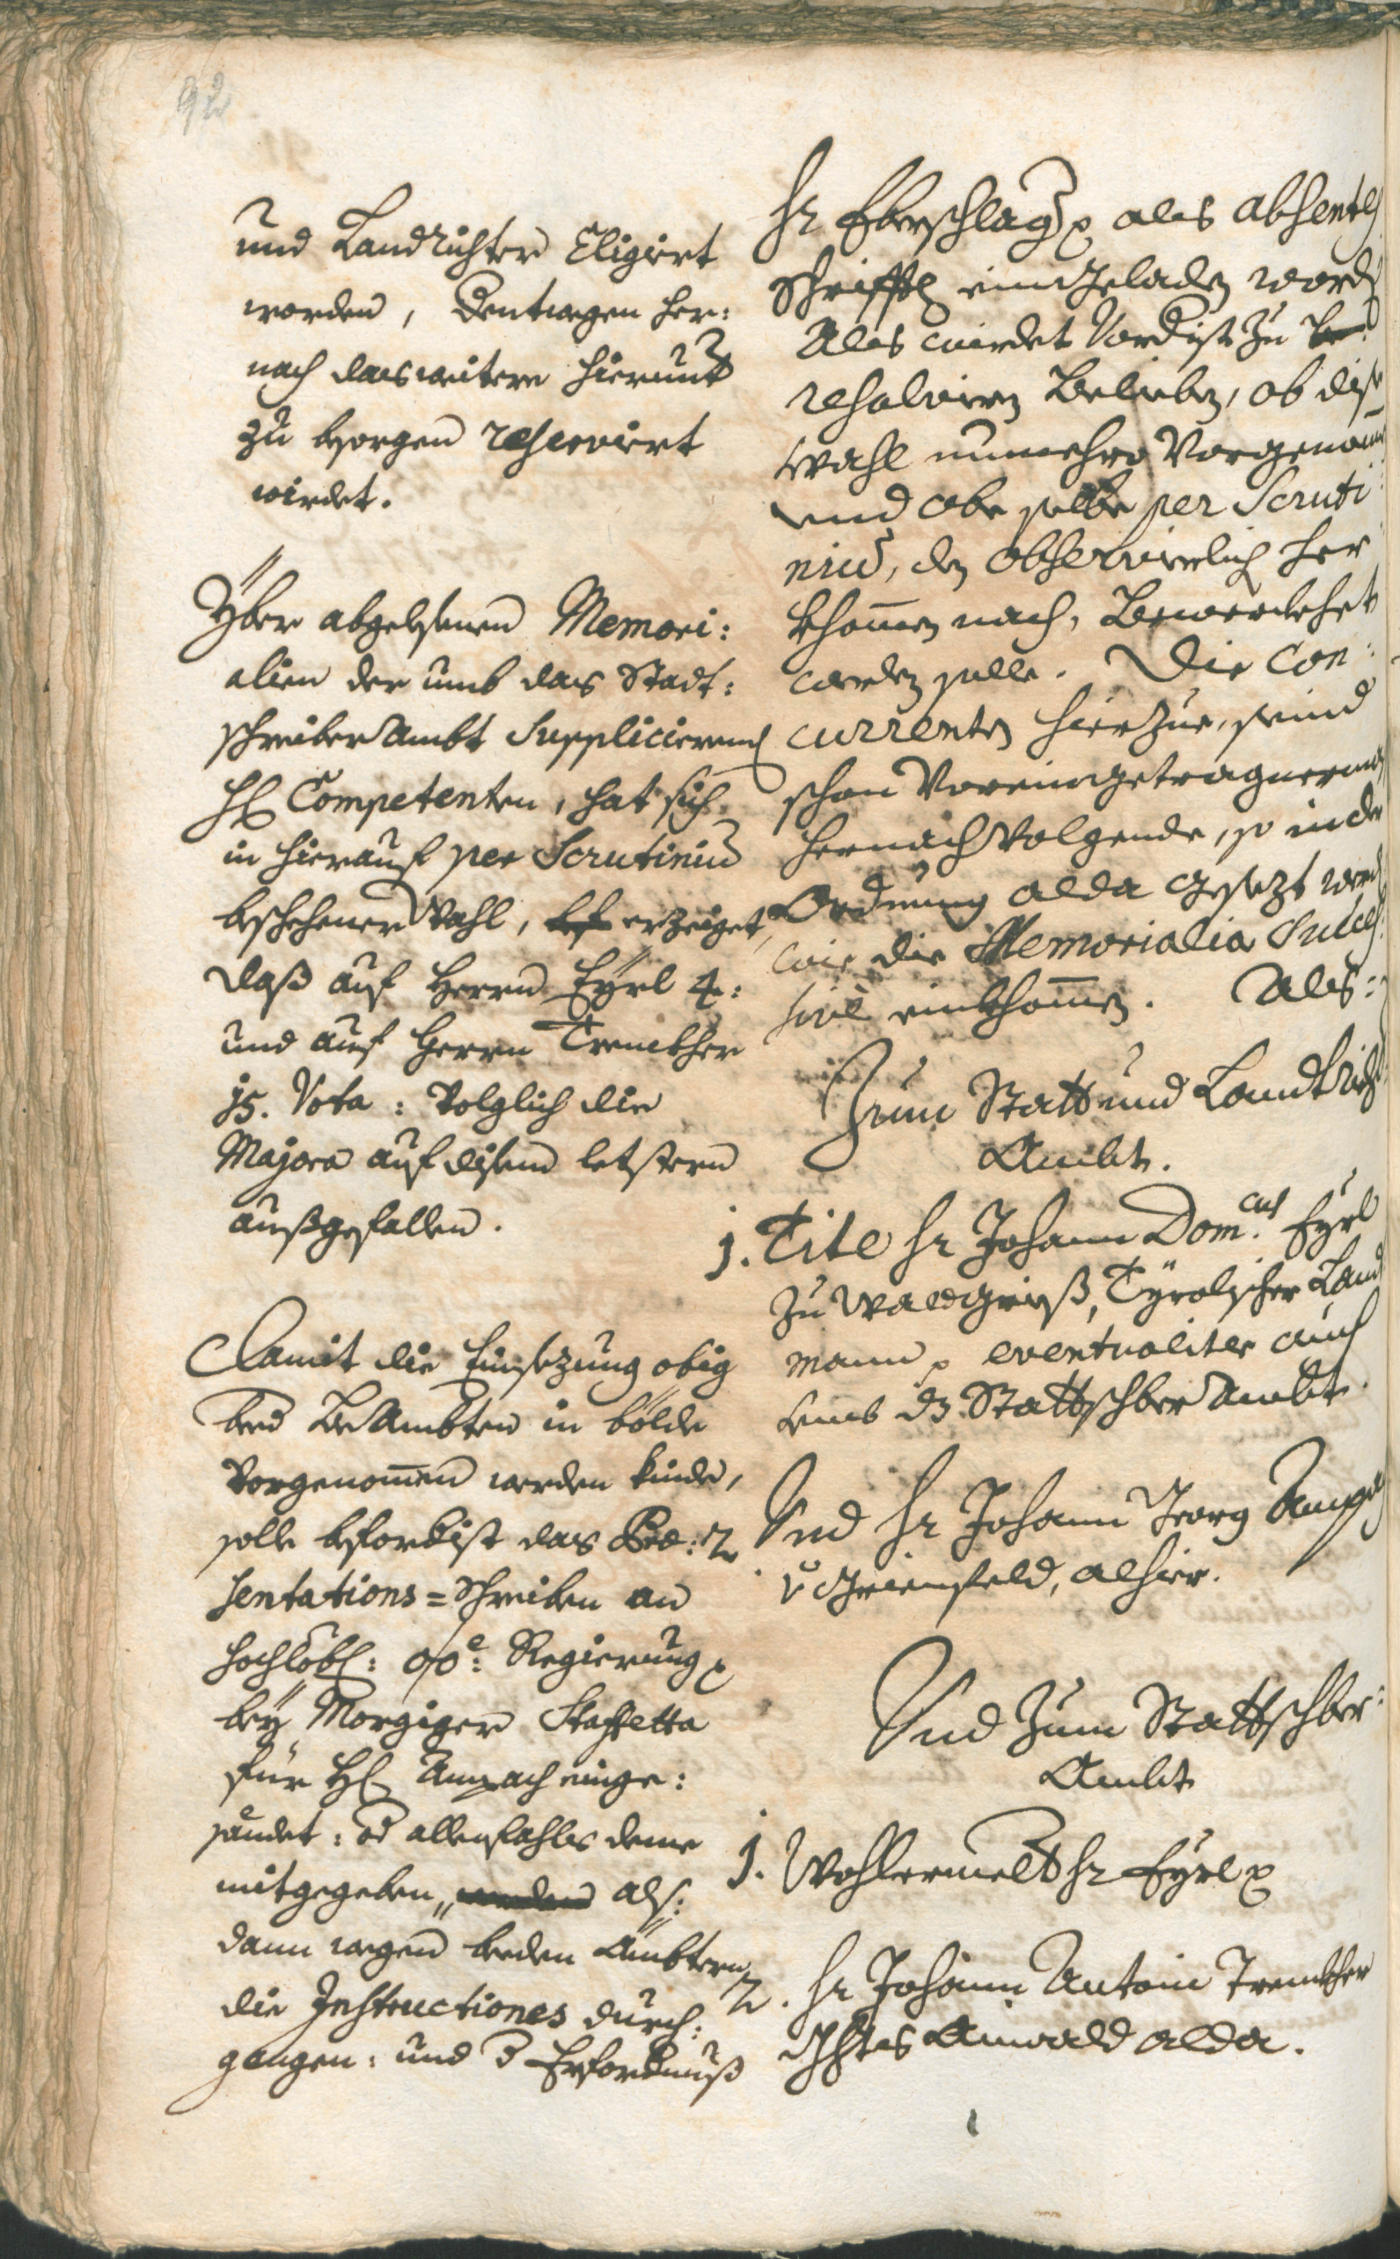 92
und Landrichter Eligiert
worden, Dentwegen her:
nach das weitere hierumb
zu besorgen reserviert
wirdet.
Yber abgelesenen Memori:
alien der umb das Stadt:
schreiber Ambt Supplicierend
H Competenten, hat sich
in hierauf per Scrutiniu
beschehener Wahl, erzeiget,
daß auf Herrn Eyrl 4:
und auf Herrn Trenckher
15. Vota: Volglich die
Majora auf disem letstern
außgefallen.
Damit die Einsezung obig
beed BeAmbten in bölde
Vorgenomen werden kinde,
solle das Præ:
sentations=Schreiben an
Hochlöbl: oö: Regierung
bey Morgiger Staffetta
für H einge:
sendet: od allenfahls deme
mitgegeben, als:
dann wegen beeden Ämbtern
die Instructiones durch:
gangen: und Erfordnuß
Hr Eberschlag als absent
Schrifftl eingeladen word
Als wirdet Vordist zu
resolvirn Belieben, ob dise
Wahl nunmehro Vorgenom
und obe selbe per Scruti
niu, den observierlich her
khomen nach, Bewerckhet
werden solle. Die Con:
currenten hierzue, seind
schon Voreingetragner
hernach Volgende, so in der
Ordnung alda gesezt werd
wie die Memorialia Succes
sivè einkhomen. Als:
Zum Statt und Landtricht
Ambt.
1. Tite Hr Johann Dom.cus Eyrl
zu Waldgrieß, Tyrolischer Land
mann eventualiter auch
umb ds Stattschber Ambt.
2. Und Hr Johann Georg
v Grienfeld, alhier.
Und zum Stattschber:
Ambt
1. Wohlermelt Hr Eyrl
2. Hr Johann Antoni Trenckher
Anwald alda.